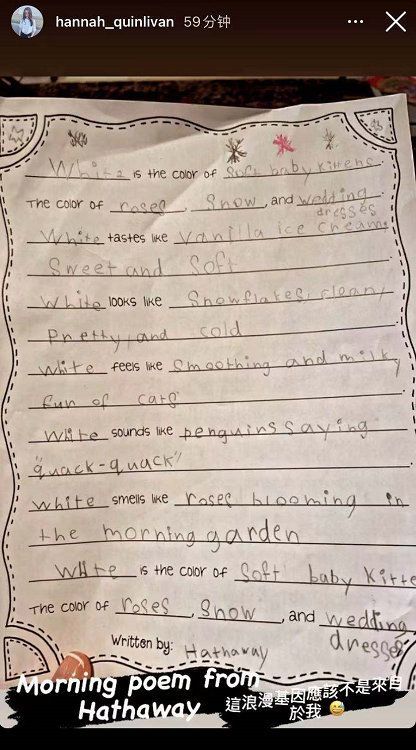 hannah_quinlivan 59分钟
White is the color of Soft baby kittens
The color of roses, Snow, and wedding
dresses
White tastes like Vanilla ice cream,
Sweet and Soft.
White looks like Snowflakes, clean,
Pretty, and cold
White feels like Smoothing and milk,
fun of cats
White sounds like penguins saying
"quack-quack"
White smells like roses blooming in
the morning garden
White is the color of Soft baby kitte
The color of roses, Snow, and wedding
dresses
Written by: Hathaway
Morning poem from
Hathaway
這浪漫基因應該不是來自
於我 😅